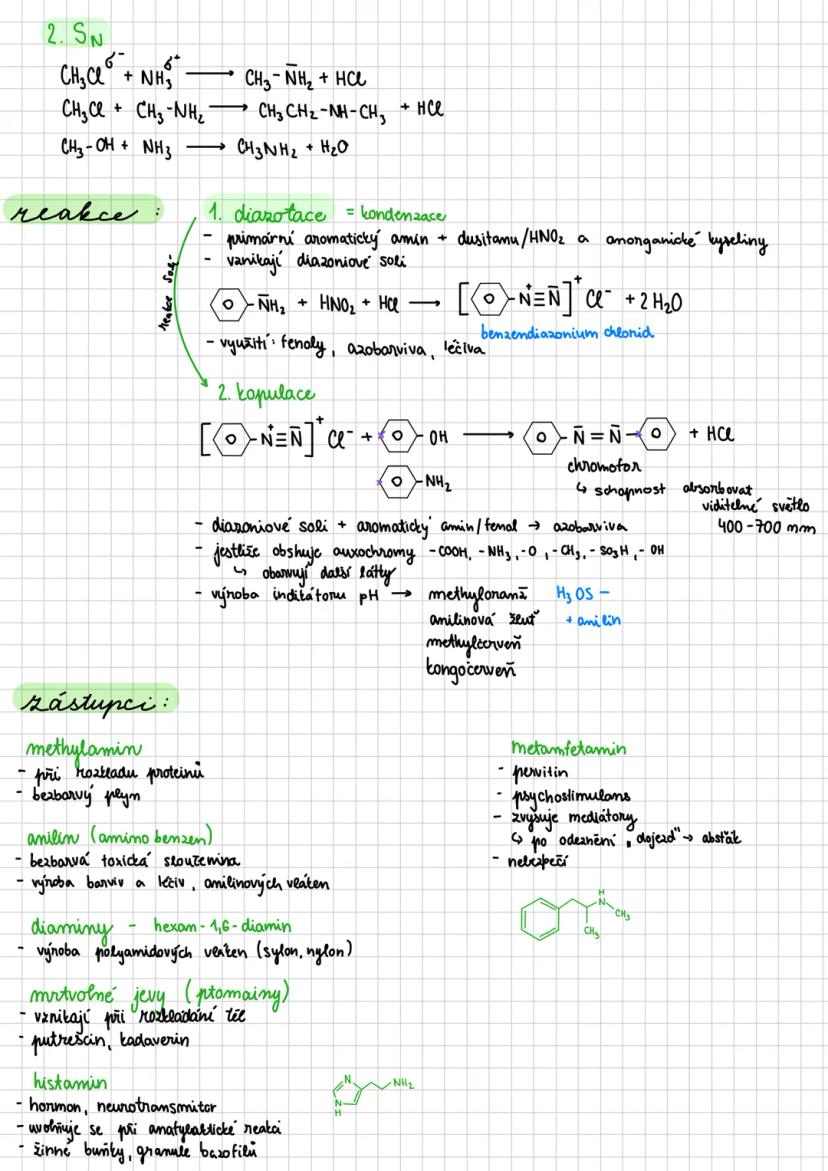 2. SN
CH3Cl δ- + NH3 δ+ ⟶ CH3-N̄H2 + HCl
CH3Cl + CH3-NH2 ⟶ CH3CH2-NH-CH3 + HCl
CH3-OH + NH3 ⟶ CH3NH2 + H2O
reakce :
1. diazotace = kondenzace
- primární aromatický amin + dusitanu/HNO2 a anorganické kyseliny
- vznikají diazoniové soli
reakce
-N̄H2 + HNO2 + HCl ⟶ [ -N⁺≡N̄ ]⁺ Cl⁻ + 2H2O
benzendiazonium chlorid
- využití: fenoly, azobarviva, léčiva
2. kopulace
[ -N⁺≡N̄ ]⁺ Cl⁻ + -OH ⟶ -N̄=N̄- + HCl
-NH2
chromofor
↳ schopnost absorbovat
viditelné světlo
400-700 mm
- diazoniové soli + aromatický amin/fenol → azobarviva
- jestliže obshuje auxochromy -COOH, -NH3, -O, -CH3, -SO3H, -OH
↳ obarvují další látky
- výroba indikátoru pH → methyloranž H3OS -
anilinová žluť + anilin
methylčerveň
kongočerveň
zástupci:
methylamin
- při rozkladu proteinů
- bezbarvý plyn
anilin (amino benzen)
- bezbarvá toxická sloučenina
- výroba barviv a léčiv, anilinových vláken
diaminy - hexan-1,6-diamin
- výroba polyamidových vláken (sylon, nylon)
mrtvolné jevy (ptomainy)
- vznikají při rozkládání těl
- putrescin, kadaverin
histamin
- hormon, neurotransmitor
- uvolňuje se při anafylaktické reakci
- žírné buňky, granule bazofilů
N
N
H
NH2
metamfetamin
- pervitin
- psychostimulans
- zvyšuje mediátory
↳ po odeznění „dojezd" → absťák
- nebezpečí
H
N
CH3
CH3